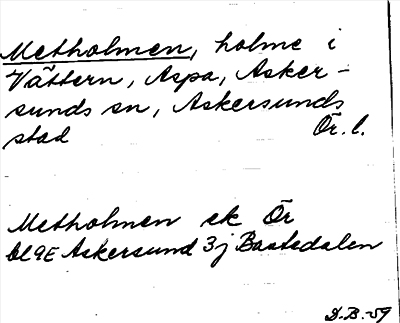 Metholmen, holme i
Vättern, Aspa, Asker-
sunds sn, Askersunds
stad Ör. l.
Metholmen ek Ör
bl 9E Askersund 3j Bastedalen
D.B. -59